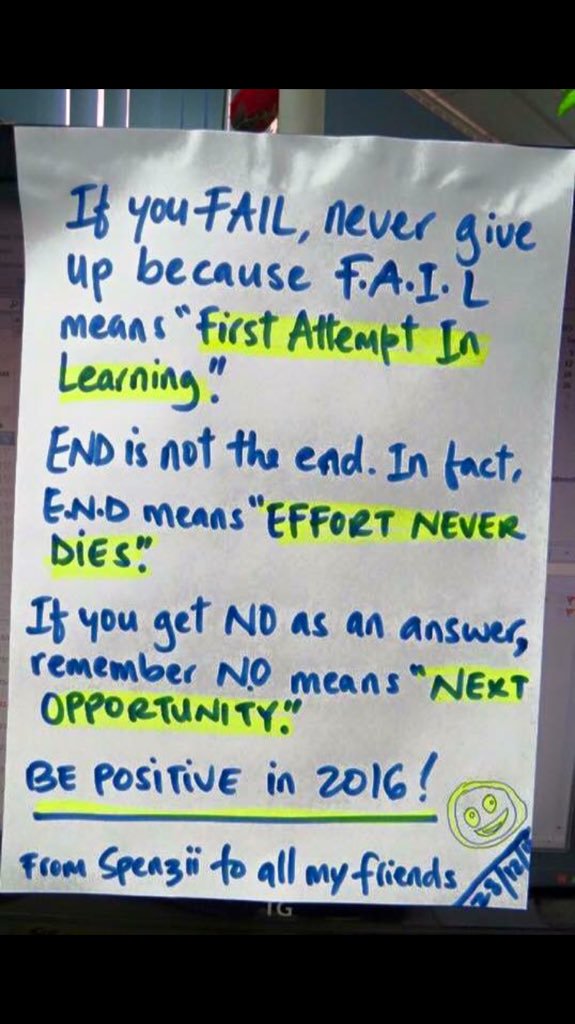 If you FAIL, never give
up because F.A.I.L
means "First Attempt In
Learning."
END is not the end. In fact,
E.N.D means "EFFORT NEVER
DiES."
If you get NO as an answer,
remember N.O means "NEXT
OPPORTUNITY."
BE POSITIVE in 2016!
From Spenzii to all my friends